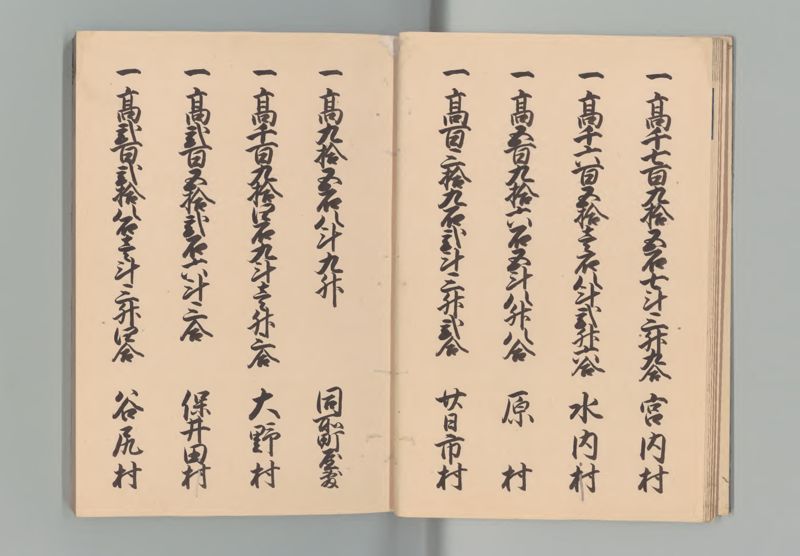 一高千七百九拾五石七斗三升九合 宮内村
一高千六百五拾壱石八斗弐升六合 水内村
一高五百九拾六石五斗八升八合 原村
一高百三拾九石弐斗三升弐合 廿日市村
一高九拾五石八斗九升 同所町屋敷
一高千百九拾四石九斗壱升三合 大野村
一高弐百五拾弐石六斗三合 保井田村
一高弐百弐拾八石壱斗三升四合 谷尻村